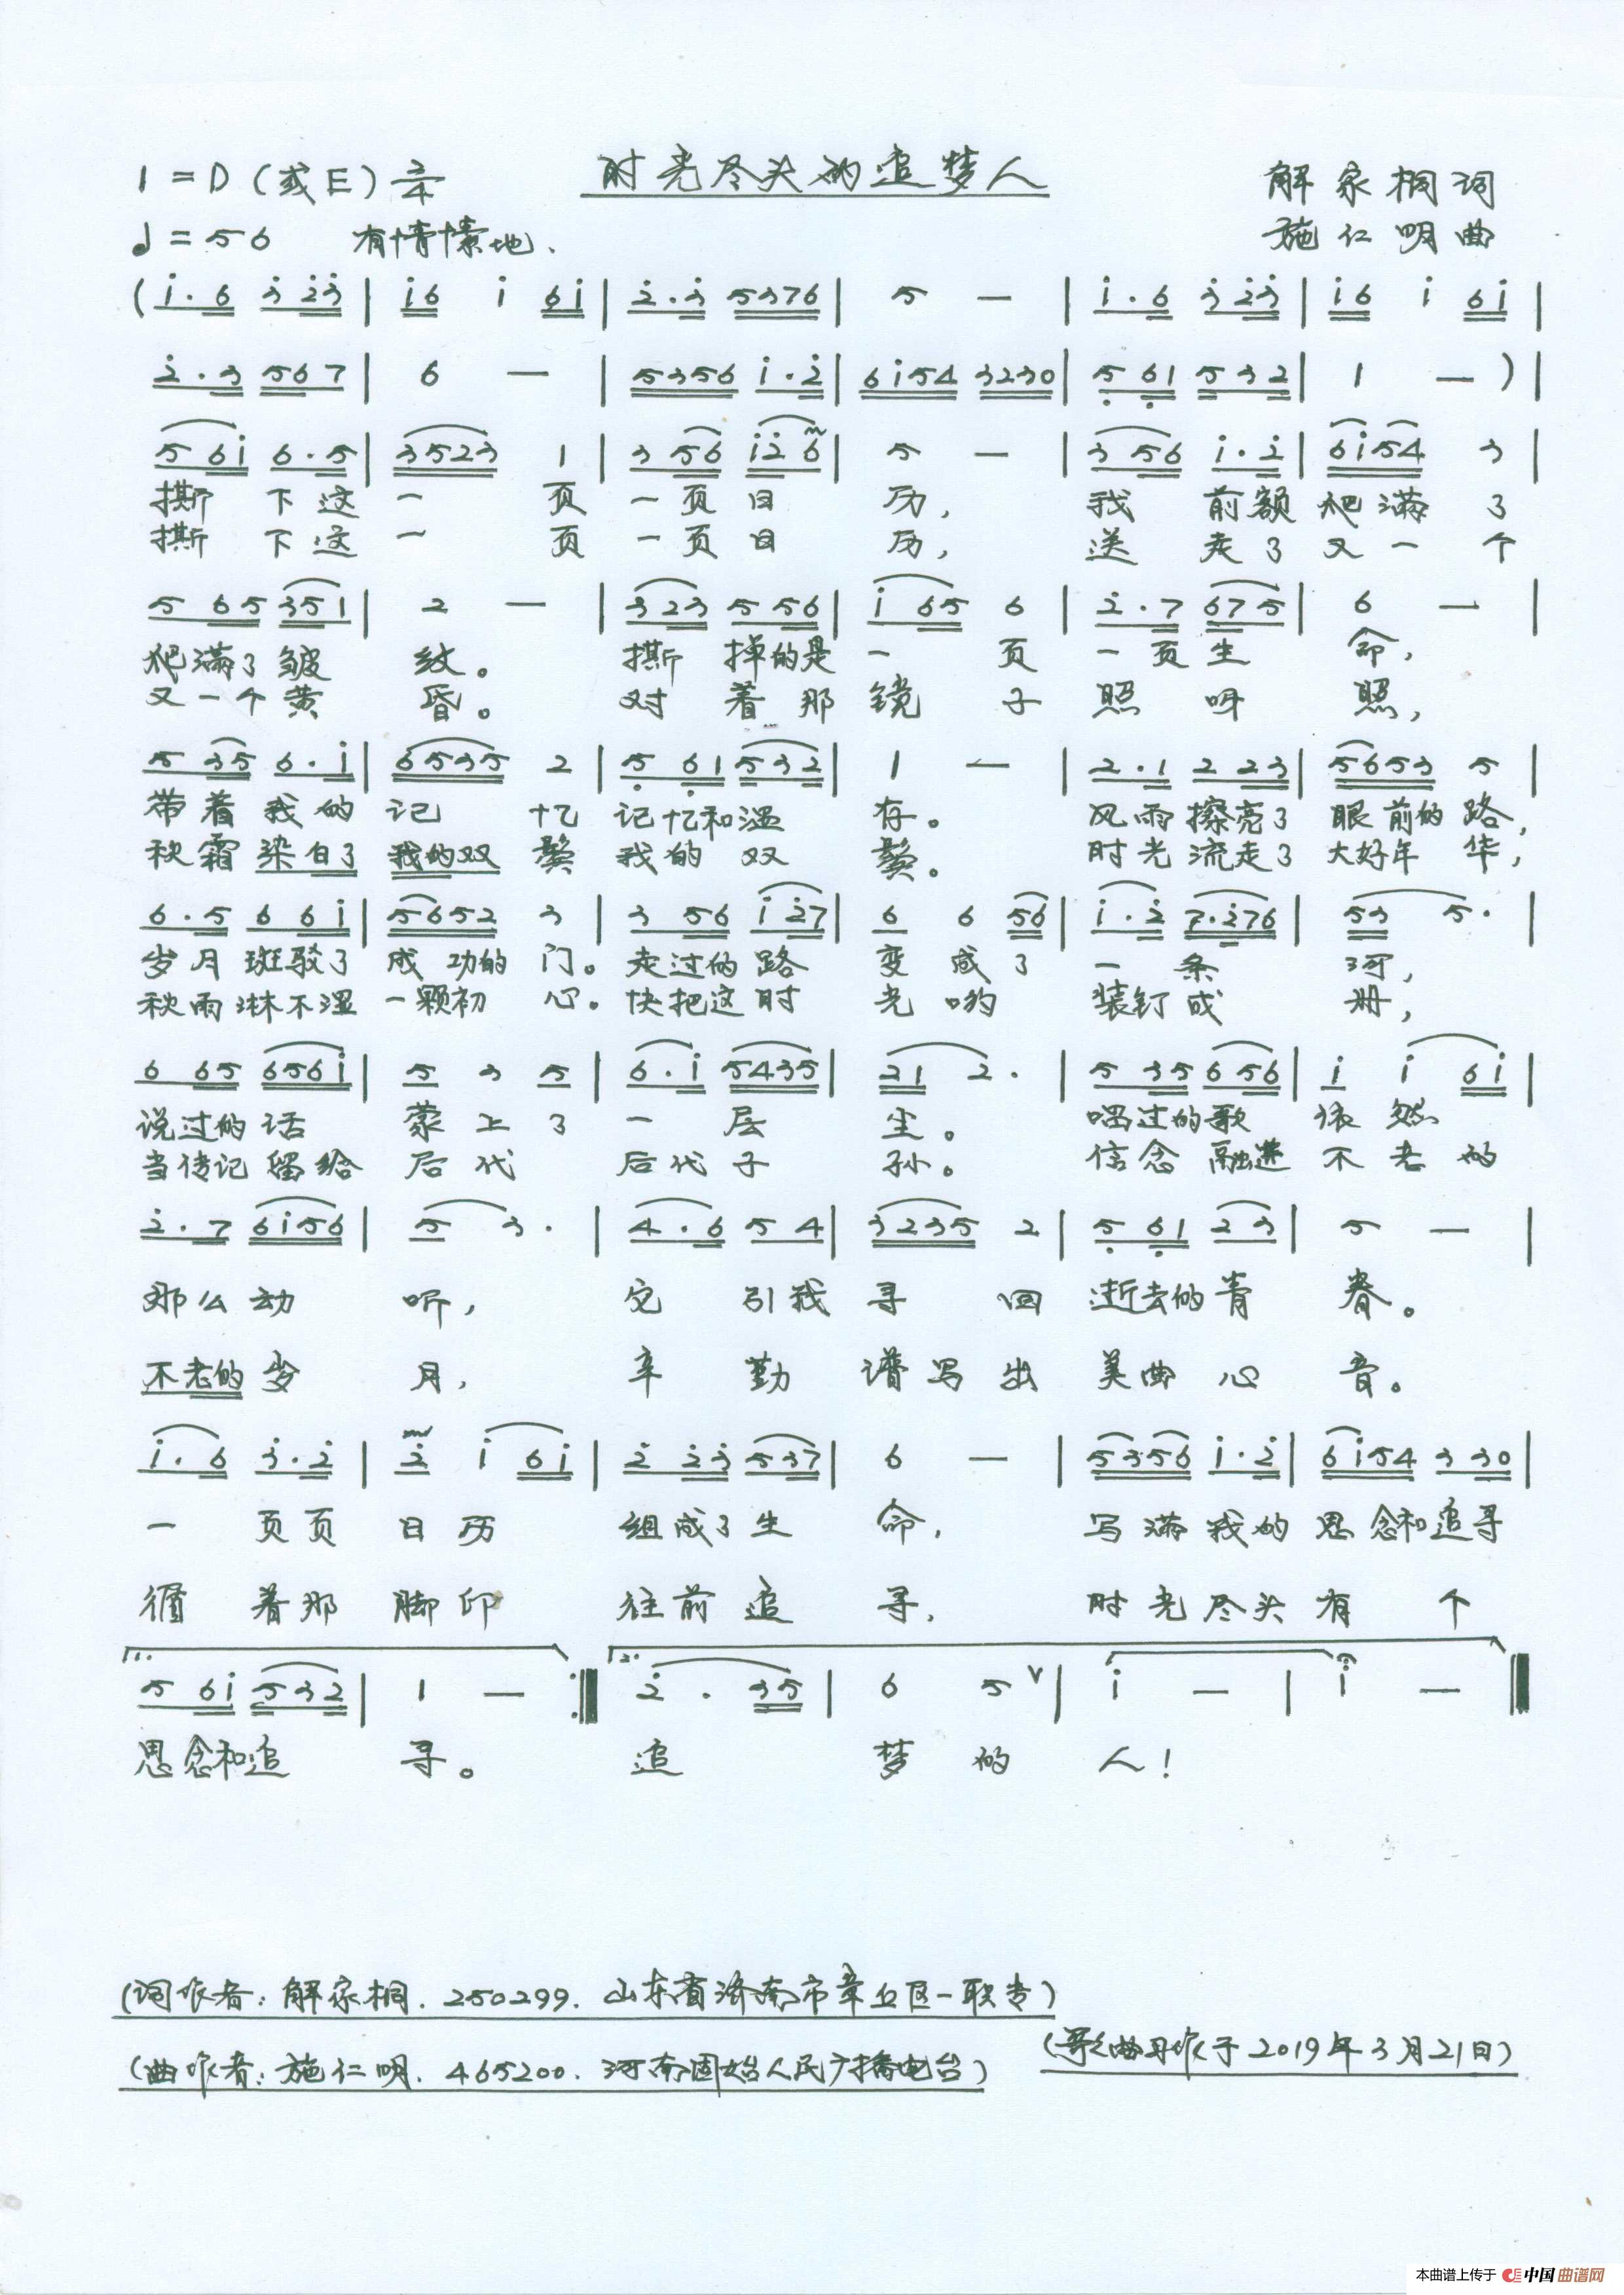 时光尽头的追梦人
1=D(或E) 2/4
解家桐词
♩=56 有情愫地、
施仁明曲
(i·6 3 23 | i6 i 6i | 2·3 5376 | 5 — | i·6 3 23 | i6 i 6i |
2·3 567 | 6 — | 5356 i·2 | 6i54 3230 | 5 61 532 | 1 — ) |
5 6i 6·5 | 3523 1 | 3 56 i2 6 | 5 — | 3 56 i·2 | 6i54 3 |
撕下这一页一页日历, 我前额爬满了
撕下这一页一页日历, 送走了又一个
5 65 351 | 2 — | 3 23 5 56 | i 65 6 | 2·7 675 | 6 — |
爬满了皱纹。 撕掉的是一页一页生命,
又一个黄昏。 对着那镜子照呀照,
5 35 6·i | 6535 2 | 5 61 532 | 1 — | 2·1 2 23 | 5653 5 |
带着我的记忆记忆和温存。 风雨擦亮了眼前的路,
秋霜染白了我的双鬓我的双鬓。 时光流走了大好年华,
6·5 6 6i | 5652 3 | 3 56 i 27 | 6 6 56 | i·2 7·276 | 53 5· |
岁月斑驳了成功的门。走过的路变成了一条河,
秋雨淋不湿一颗初心。快把这时光哟装钉成册,
6 65 656i | 5 3 5 | 6·i 5435 | 21 2· | 5 35 6 56 | i i 6i |
说过的话蒙上了一层尘。 唱过的歌依然
当传记留给后代后代子孙。 信念融进不老的
2·7 6i56 | 5 3· | 4·6 5 4 | 3235 2 | 5 61 2 3 | 5 — |
那么动听, 它引我寻回逝去的青春。
不老的岁月, 辛勤谱写出美曲心音。
i·6 3·2 | 2 i 6i | 2 23 537 | 6 — | 5356 i·2 | 6i54 3 30 |
一页页日历组成了生命, 写满我的思念和追寻
循着那脚印往前追寻, 时光尽头有个
1. 5 6i 532 | 1 — :‖ 2. 2 · 35 | 6 5 ∨ | i — | i — ‖
思念和追寻。 追梦的人!
(词作者:解家桐. 250299. 山东省济南市章丘区一职专)
(曲作者:施仁明. 465200. 河南固始人民广播电台)
(歌曲写作于2019年3月21日)
本曲谱上传于 中国曲谱网